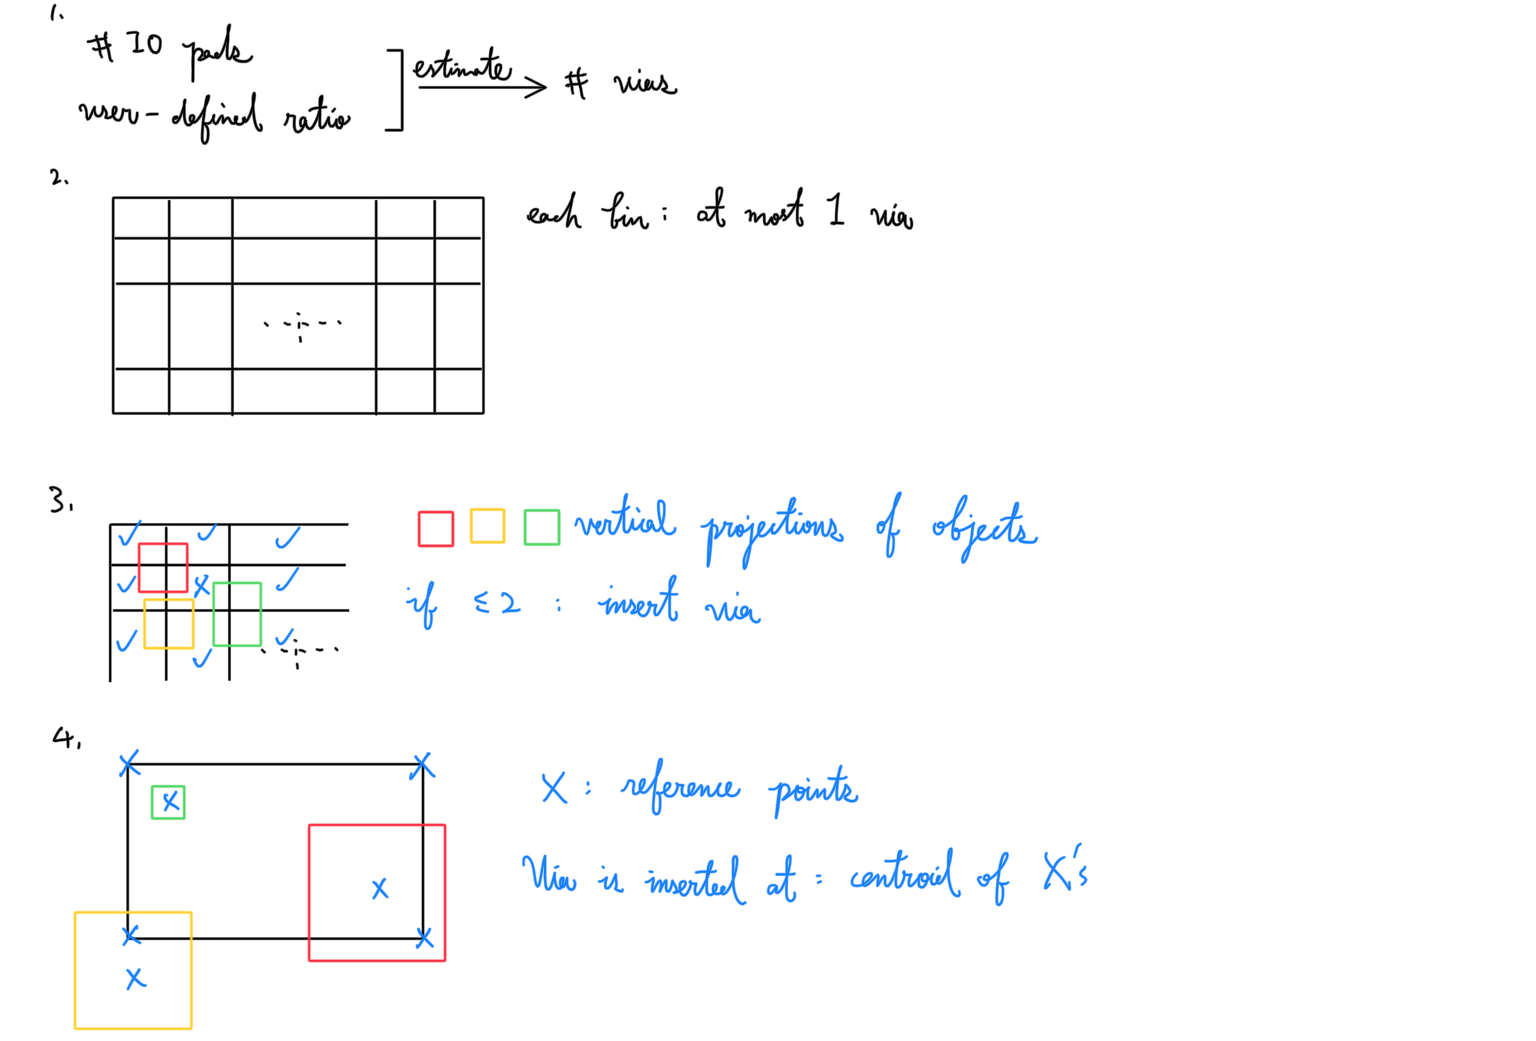 1.
# IO pads
user-defined ratio
estimate
# vias
2.
each bin : at most 1 via
3.
vertical projections of objects
if ≤2 : insert via
4.
X : reference points
Via is inserted at : centroid of X's